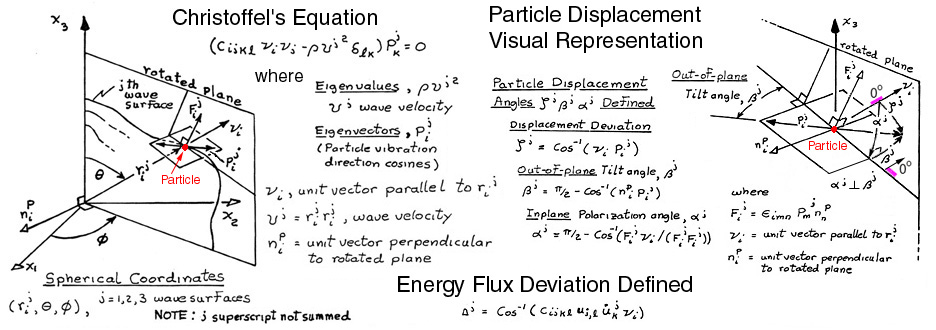 Christoffel's Equation
(Cijkl νi νj - ρυj² δlk) Pkj = 0
where
Eigenvalues, ρυj²
υj wave velocity
Eigenvectors, Pij
(Particle vibration
direction cosines)
νi, unit vector parallel to rij
υj = rij rij, wave velocity
niP = unit vector perpendicular
to rotated plane
x3
jth
wave
surface
rotated plane
Fij
νi
Pij
rij
Particle
θ
niP
x2
φ
x1
Spherical Coordinates
(rij, θ, φ), j=1,2,3 wave surfaces
NOTE: j superscript not summed
Particle Displacement
Visual Representation
Particle Displacement
Angles ζj βj αj Defined
Displacement Deviation
ζj = Cos⁻¹(νi Pij)
Out-of-plane Tilt angle, βj
βj = π/2 - Cos⁻¹(niP Pij)
Inplane Polarization angle, αj
αj = π/2 - Cos⁻¹(Fij νi/(Fij Fij))
x3
rotated plane
Out-of-plane
Tilt angle, βj
Fij
0°
νi
ζj
αj
Pij
niP
Particle
βj
0°
αj ⊥ βj
where
Fij = εimn Pmj nnP
νi = unit vector parallel to rij
niP = unit vector perpendicular
to rotated plane
Energy Flux Deviation Defined
Δj = Cos⁻¹(Cijkl uj,l u̇kj νi)